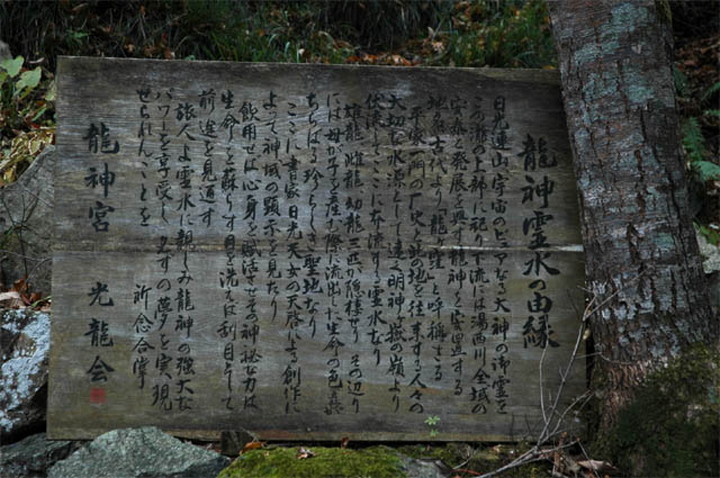 龍神霊水の由縁
日光連山宇宙のピュアなる大神の御霊を
この滝の上部に祀り下流には湯西川全域の
安泰と発展を興す龍神を安置する
地名古代より「龍ヶ窪」と呼称せる
平家一門の歴史と此の地を往来する人々の
大切な水源として遠く明神ヶ嶽の嶺より
伏流してここに本流する霊水なり
雄龍 雌龍 幼龍 三匹が隠棲せり その辺り
には母が子を産む際に流出した生命の色義
ちらばる珍らしき聖地なり
ここに書家日光天女の天啓による創作に
よって神域の顕示を見たり
飲用せば心身を賦活させその神秘な力は
生命力を蘇らす目を洗えば刮目として
前途を見通す
旅人よ霊水に親しみ龍神の強大な
パワーを享受し 夫々の夢を実現
せられんことを
祈念合掌
龍神宮 光龍会